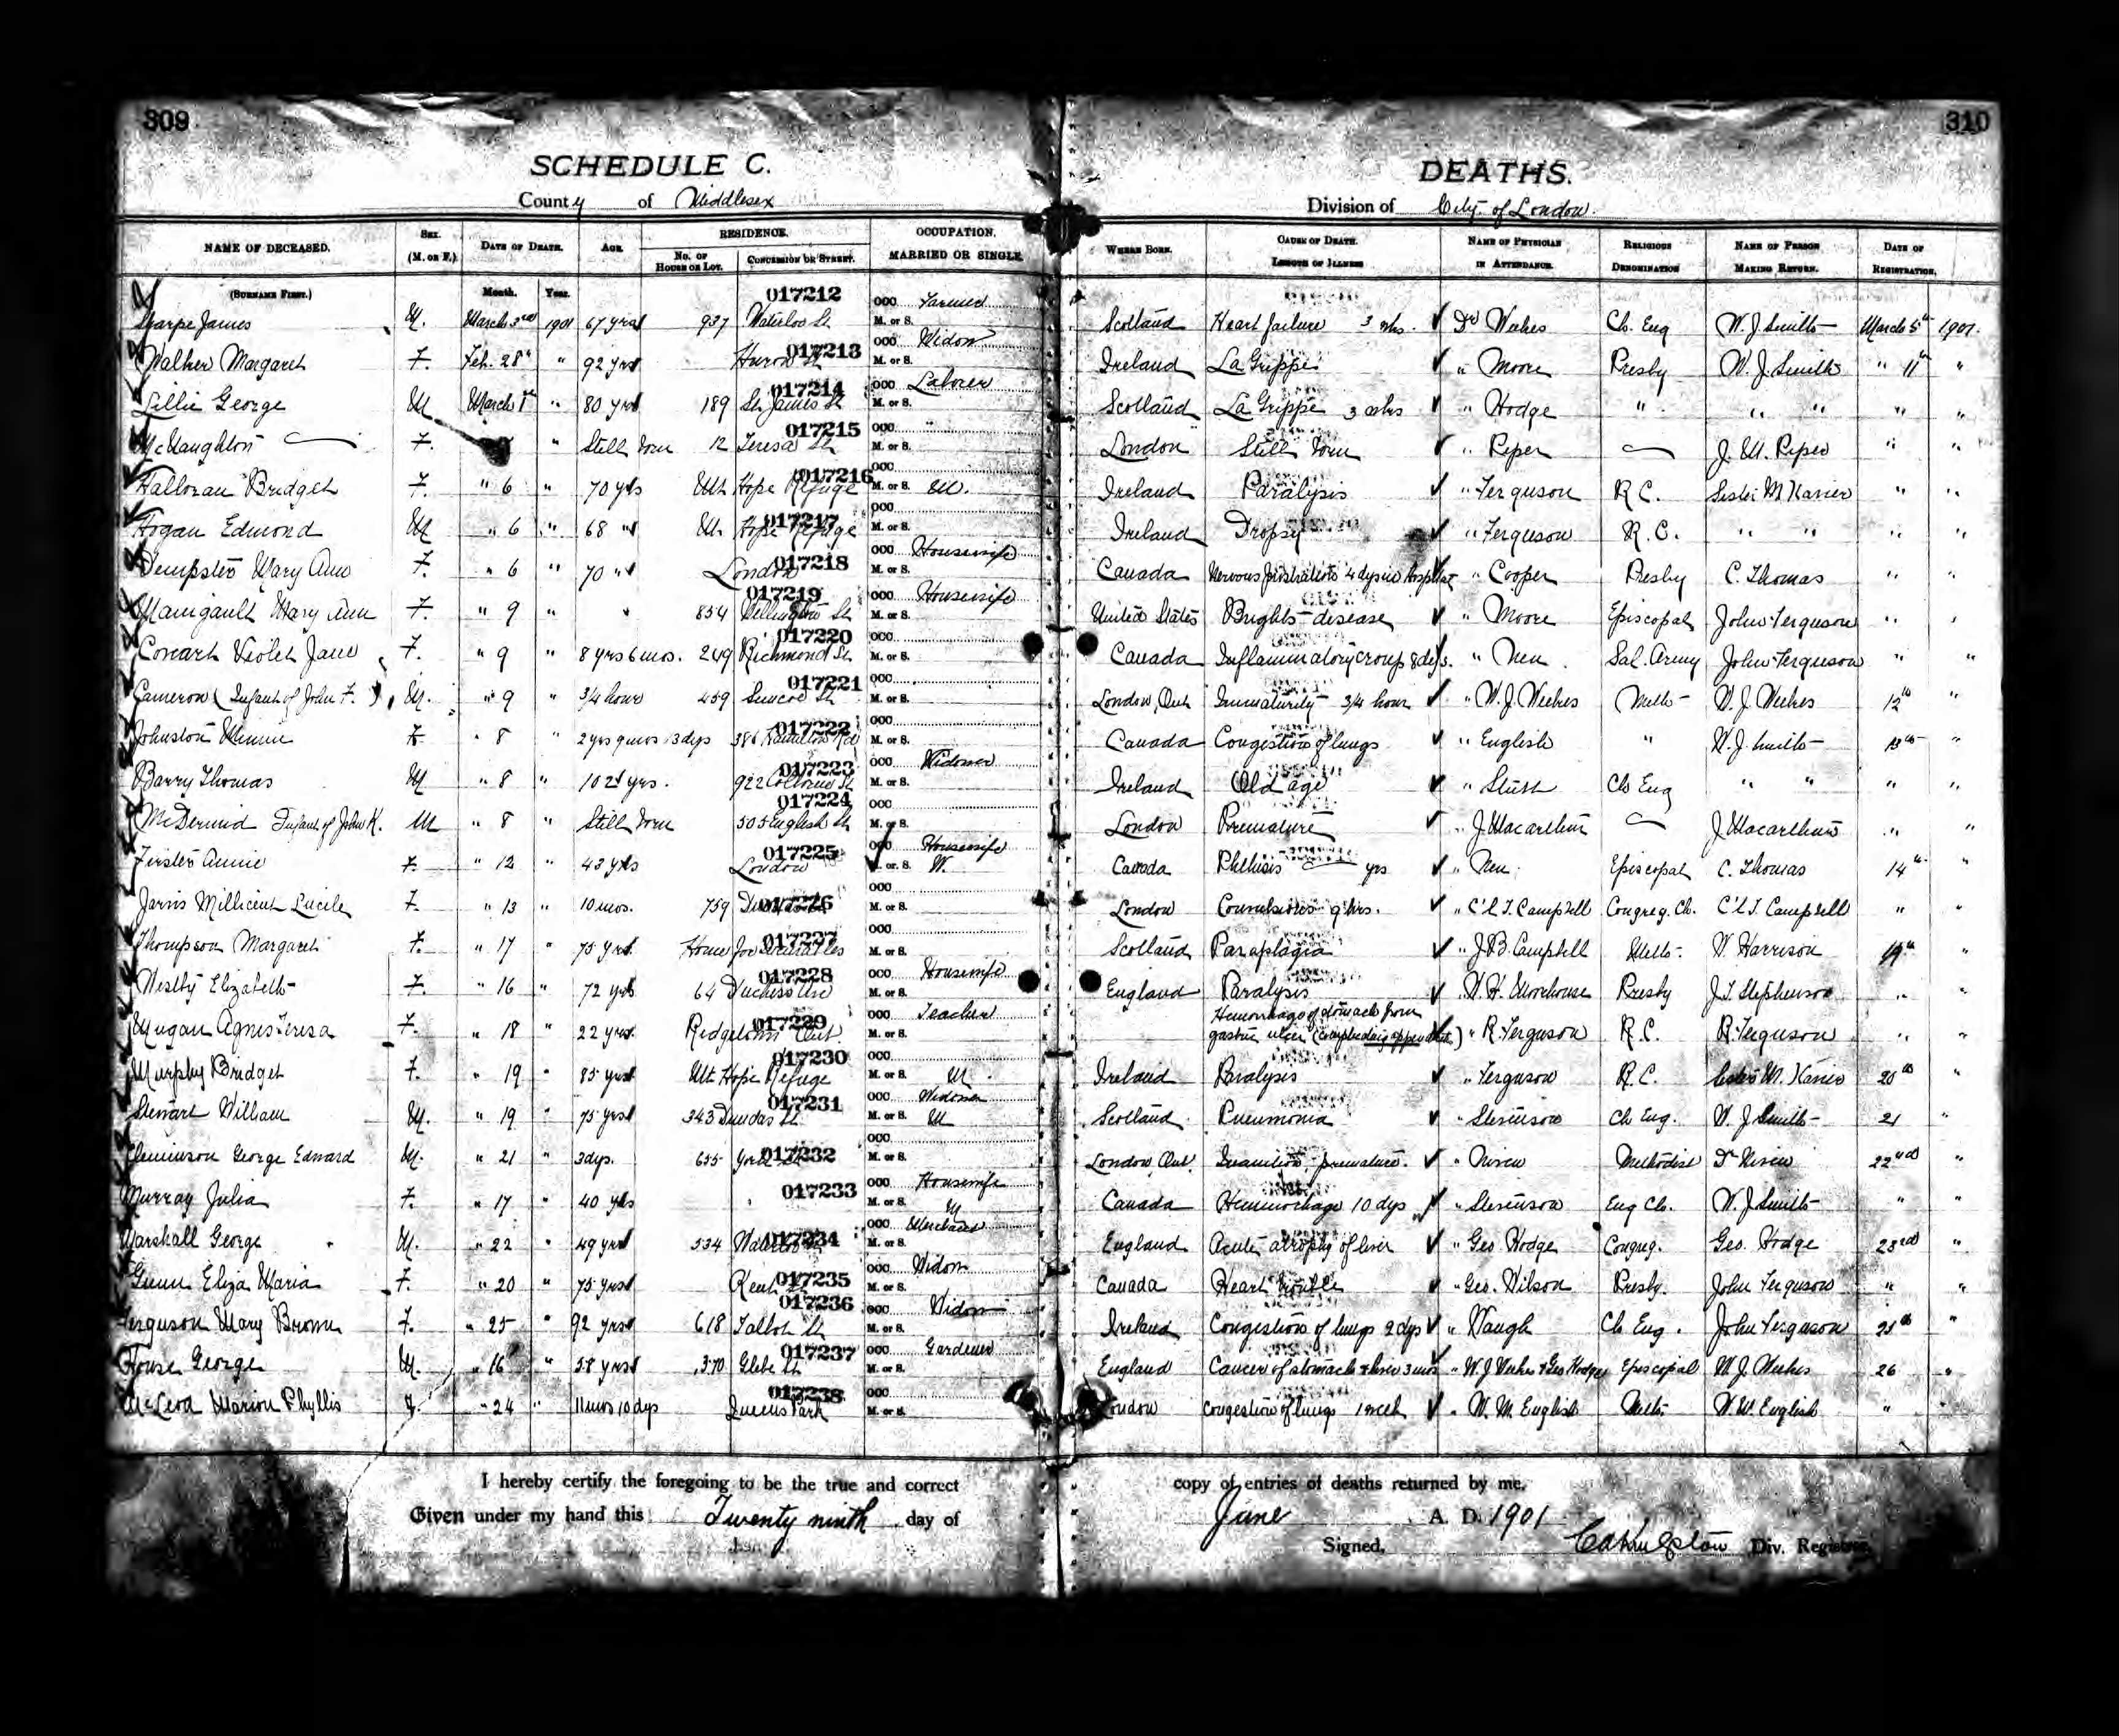 309
310
SCHEDULE C.
DEATHS.
County of Middlesex
Division of City of London
NAME OF DECEASED. SEX. (M. OR F.) DATE OF DEATH. AGE. RESIDENCE. No. OF HOUSE OR LOT. CONCESSION OR STREET. OCCUPATION. MARRIED OR SINGLE. WHERE BORN. CAUSE OF DEATH. LENGTH OF ILLNESS NAME OF PHYSICIAN IN ATTENDANCE. RELIGIOUS DENOMINATION NAME OF PERSON MAKING RETURN. DATE OF REGISTRATION.
(SURNAME FIRST.) Month. Year.
017212
Sharpe James M. March 3rd 1901 67 yrs 937 Waterloo St OCC. M. or S. Scotland Heart failure 3 wks. Dr Weekes Ch. Eng W. J. Smith March 5th 1901.
017213
Walker Margaret F. Feb. 28th " 92 yrs Huron St OCC. Widow M. or S. Ireland La Grippe " Moore Presby W. J. Smith " 11th "
017214
Lillie George M March 1st " 80 yrs 189 St James St OCC. Laborer M. or S. Scotland La Grippe 3 wks " Hodge " " " " "
017215
McNaughton F. " Still born 12 Teresa St M. or S. London Still born " Piper J. W. Piper " "
017216
Halloran Bridget F. " 6 " 70 yrs Mt Hope Refuge OCC. M. or S. M. Ireland Paralysis " Ferguson R.C. Sister M Xavier " "
017217
Hogan Edmond M " 6 " 68 " Mt. Hope Refuge OCC. M. or S. Ireland Dropsy " Ferguson R.C. " " " "
017218
Dempster Mary Ann F. " 6 " 70 " London OCC. Housewife M. or S. Canada Nervous prostration 4 dys in Hospital " Cooper Presby C. Thomas " "
017219
Manigault Mary Ann F. " 9 " " 854 Wellington St OCC. Housewife M. or S. United States Brights disease " Moore Episcopal John Ferguson "
017220
Violet Jane F. " 9 " 8 yrs 6 mos. 249 Richmond St OCC. M. or S. Canada Inflammatory croup 8 dys. " Neu Sal. Army John Ferguson " "
017221
Cameron (Infant of John F.) M. " 9 " 3/4 hour 459 Simcoe St OCC. M. or S. London, Ont Immaturity 3/4 hour " W. J. Weekes Meth W. J Weekes 12th "
017222
Johnston Minnie F. " 8 " 2 yrs 9 mos 13 dys 386 Hamilton Rd OCC. M. or S. Canada Congestion of lungs " English " W. J. Smith 13th "
017223
Barry Thomas M " 8 " 102 yrs. 922 St OCC. Widower M. or S. Ireland Old age " Ch Eng " " " "
017224
McDermid Infant of John K. M " 8 " Still born 505 English St OCC. M. or S. London Premature " J Macarthur J Macarthur " "
017225
Annie F. " 12 " 43 yrs London OCC. Housewife M. or S. W. Canada Phthisis yrs " Neu Episcopal C. Thomas 14th "
017226
Jarvis Millicent Lucile F. " 13 " 10 mos. 759 OCC. M. or S. London Convulsions 9 hrs. " C L T. Campbell Congreg. Ch. C L T. Campbell " "
017227
Thompson Margaret F. " 17 " 75 yrs Home for Incurables OCC. M. or S. Scotland Paraplagia " J. B. Campbell Meth. W. Harrison 19th "
017228
Westby Elizabeth F. " 16 " 72 yrs 64 Duchess Ave OCC. Housewife M. or S. England Paralysis " W. H. Morehouse Presby J. T. Stephenson " "
017229
Mugan Agnes Teresa F. " 18 " 22 yrs. Ridgetown Ont. OCC. Teacher M. or S. Hemorrhage of stomach from
gastric ulcer " R. Ferguson R.C. R. Ferguson " "
017230
Murphy Bridget F. " 19 " 85 yrs Mt Hope Refuge OCC. M. or S. M Ireland Paralysis " Ferguson R.C. Sister M. Xavier 20th "
017231
Stewart William M. " 19 " 75 yrs 343 Dundas St OCC. Widower M. or S. M Scotland Pneumonia " Stevenson Ch Eng. W. J Smith 21 "
017232
Cleminson George Edward M. " 21 " 3 dys. 655 York St OCC. M. or S. London, Ont. Inanition, premature. " Niven Methodist Dr Niven 22nd "
017233
Murray Julia F. " 17 " 40 yrs OCC. Housewife M. or S. M Canada Hemmorhage 10 dys " Stevenson Eng Ch. W. J Smith " "
017234
Marshall George M. " 22 " 49 yrs 534 Waterloo St OCC. Merchant M. or S. England Acute atrophy of liver " Geo Hodge Congreg. Geo. Hodge 23rd "
017235
Gunn Eliza Maria F. " 20 " 75 yrs Kent St OCC. Widow M. or S. Canada Heart trouble " Geo. Wilson Presby. John Ferguson " "
017236
Ferguson Mary Brown F. " 25 " 92 yrs 618 Talbot St OCC. Widow M. or S. Ireland Congestion of lungs 2 dys " Waugh Ch Eng. John Ferguson 25th "
017237
House George M. " 16 " 58 yrs 370 Glebe St OCC. Gardener M. or S. England Cancer of stomach & liver 3 mos " W. J Weekes & Geo Hodge Episcopal W. J. Weekes 26 "
017238
McLeod Marion Phyllis F. " 24 " 11 mos 10 dys Queens Park OCC. M. or S. London Congestion of lungs 1 week " W. M. English Meth W. M. English " "
I hereby certify the foregoing to be the true and correct copy of entries of deaths returned by me.
Given under my hand this Twenty ninth day of June A. D. 1901
Signed, Div. Registrar.